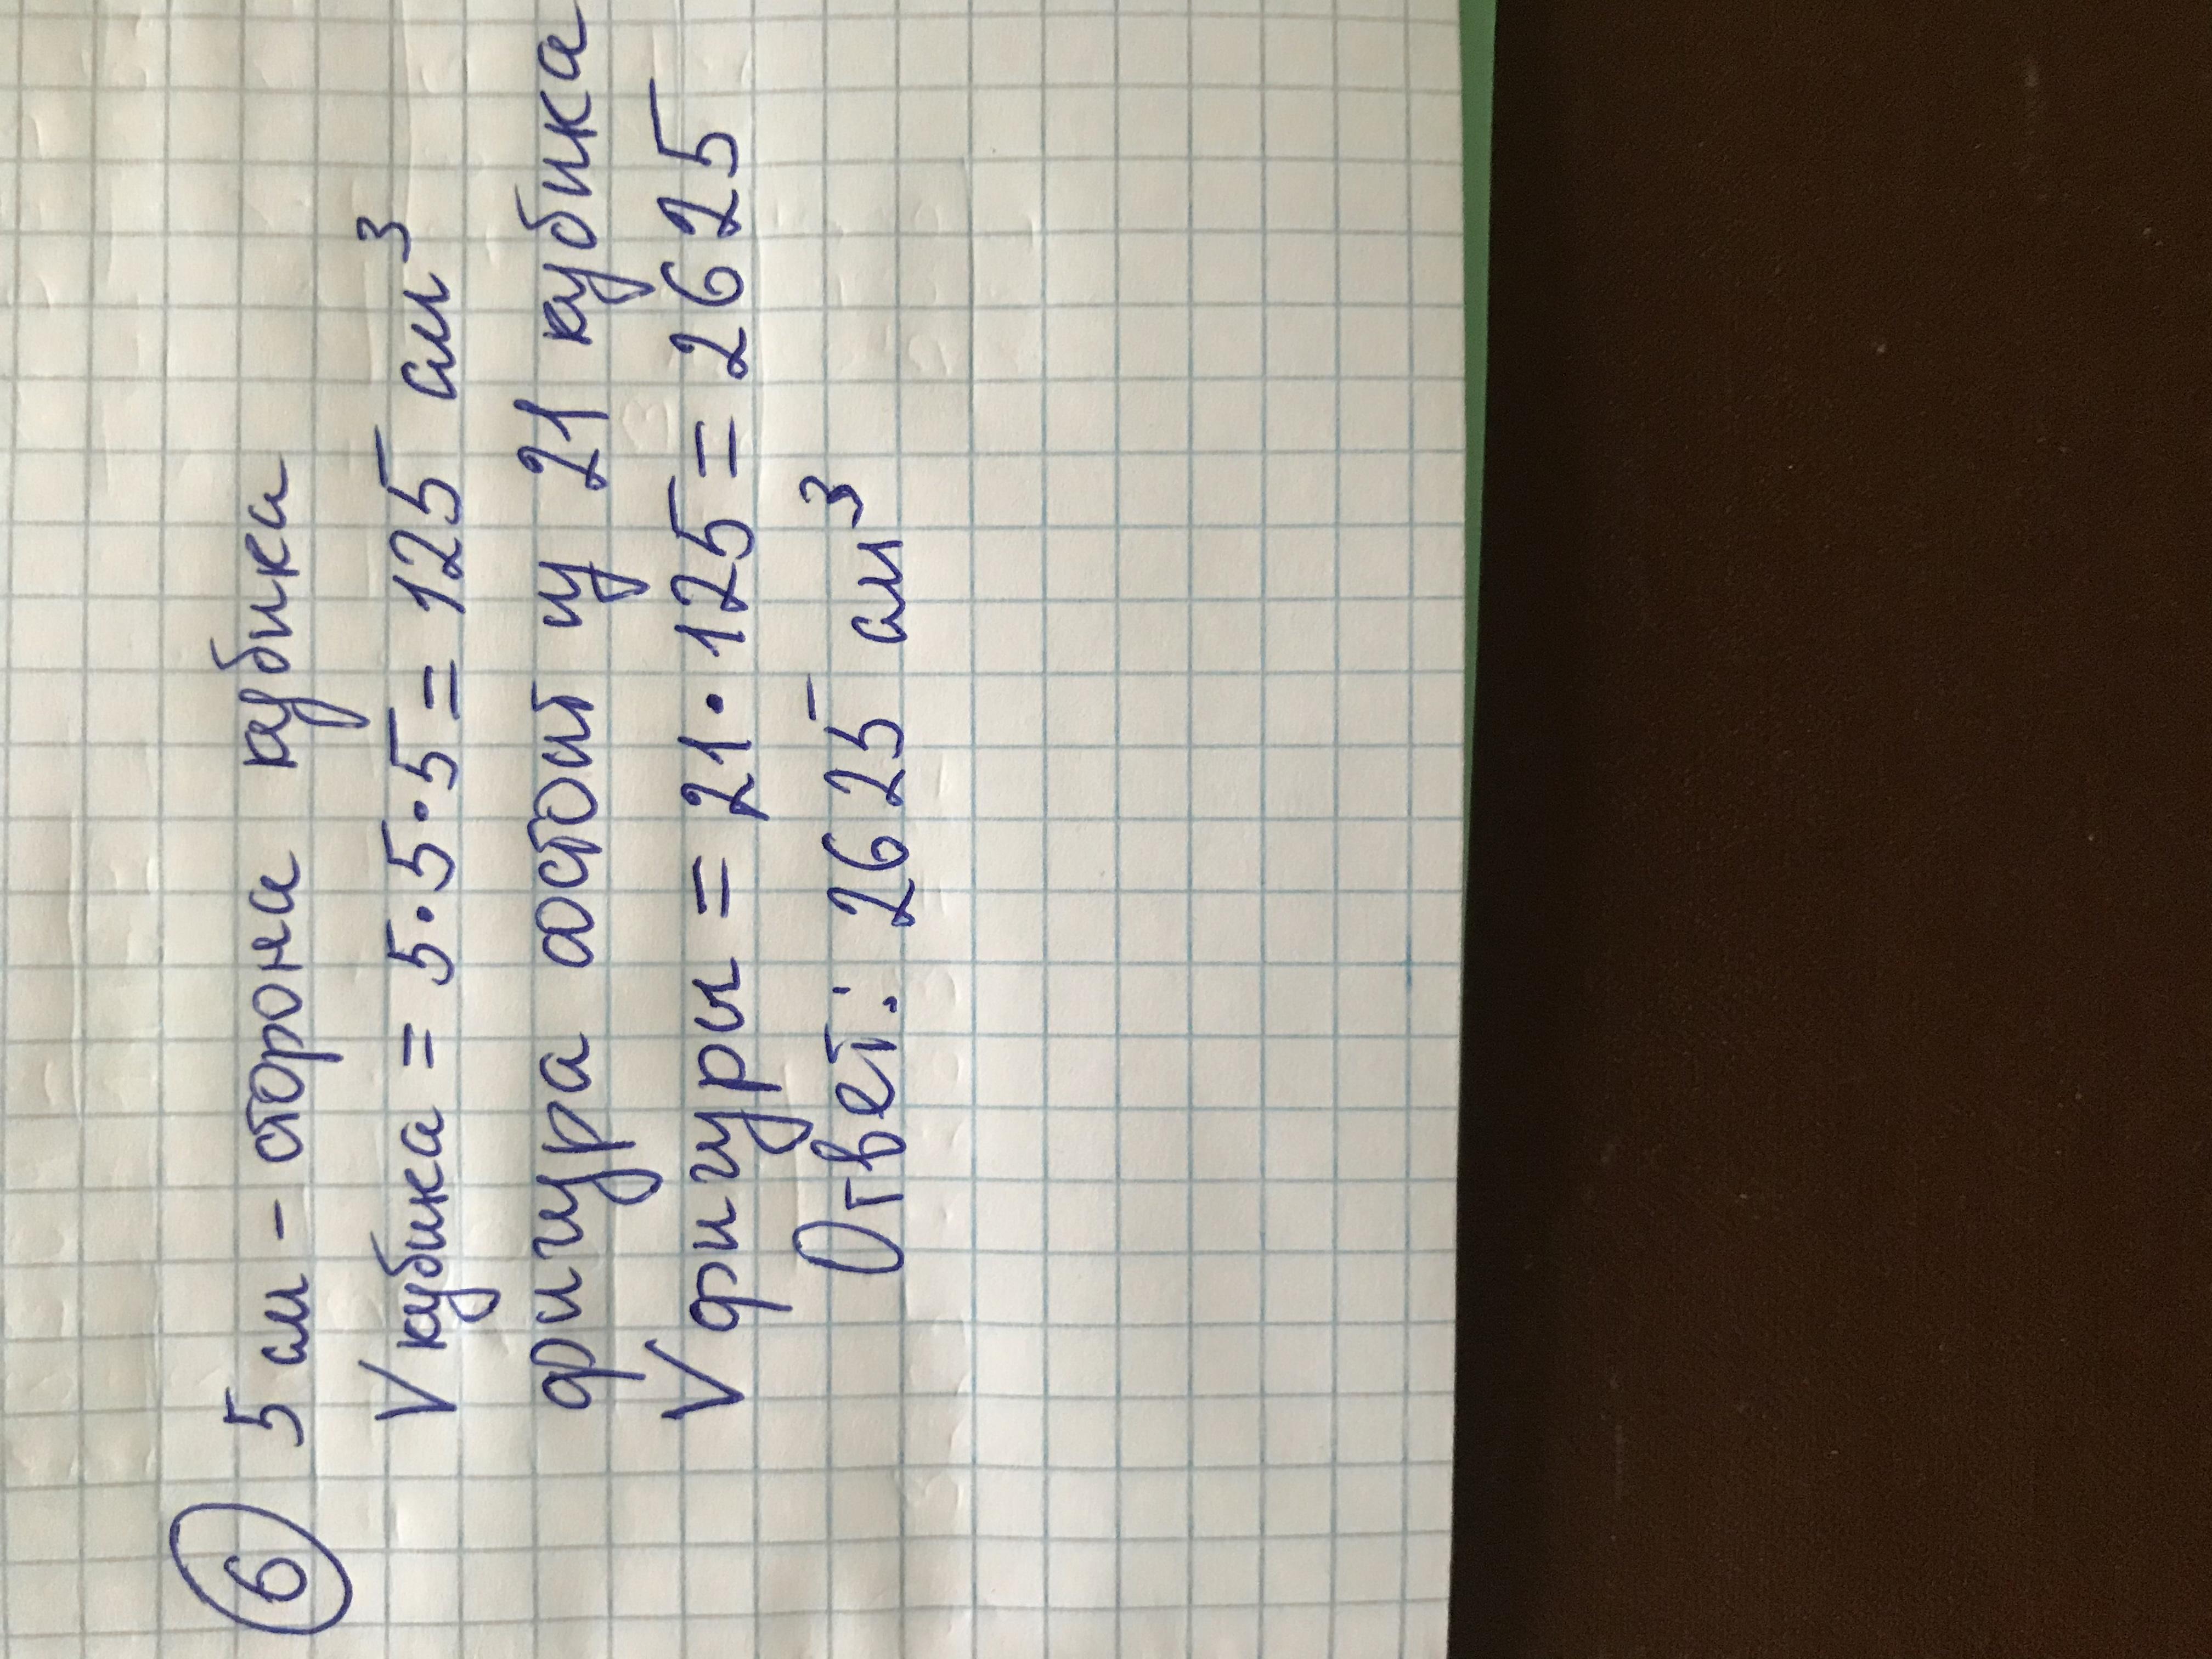 6 5 см - сторона кубика
V кубика = 5·5·5 = 125 см³
фигура состоит из 21 кубика
V фигуры = 21·125 = 2625
Ответ: 2625 см³